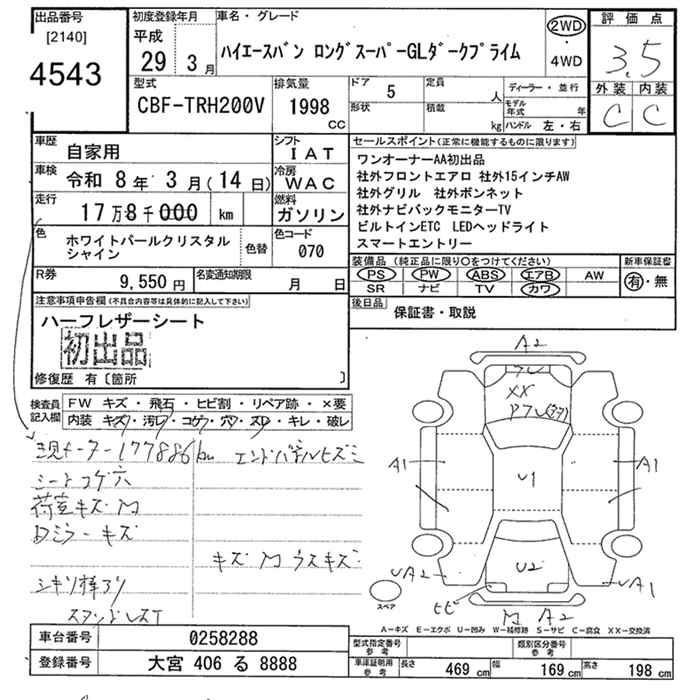 出品番号
[2140]
4543
初度登録年月
平成
29 3月
車名・グレード
ハイエースバン ロングスーパーGLダークプライム
2WD
・
4WD
評価点
3.5
外装 内装
C C
型式
CBF-TRH200V
排気量
1998
CC
ドア 5
定員 人
形状
積載 kg
ディーラー・並行
モデル年式 年
ハンドル 左・右
車歴 自家用
シフト IAT
車検 令和 8年 3月(14日)
冷房 WAC
走行 17万8千000 km
燃料 ガソリン
色 ホワイトパールクリスタルシャイン
色替
色コード 070
R券 9,550円
名変通知期限 月 日
セールスポイント(正常に機能するものに限ります)
ワンオーナーAA初出品
社外フロントエアロ 社外15インチAW
社外グリル 社外ボンネット
社外ナビバックモニターTV
ビルトインETC LEDヘッドライト
スマートエントリー
装備品(純正品に限り○をつけてください)
新車保証書
PS PW ABS エアB AW
SR ナビ TV カワ
有・無
後日品 保証書・取説
注意事項申告欄(不具合内容等は具体的に記入して下さい)
ハーフレザーシート
初出品
修復歴 有〔箇所 〕
検査員記入欄
FW キズ・飛石・ヒビ割・リペア跡・×要
内装 キズ・汚レ・コゲ・穴・スレ・キレ・破レ
現メーター177886km エンドパネルヒズミ
シートコゲ穴
荷室キズM
Dミラーキズ
キズM ウスキズ
シキリ棒アリ
A2
XX
A1
U1
A1
U2
UA2
UA1
ヒビ
M A2
スペア
A−キズ E−エクボ U−凹み W−補修跡 S−サビ C−腐食 XX−交換済
車台番号 0258288
登録番号 大宮 406 る 8888
型式指定番号
参考
類別区分番号
参考
車庫証明用
参考
長さ 469cm
幅 169cm
高さ 198cm